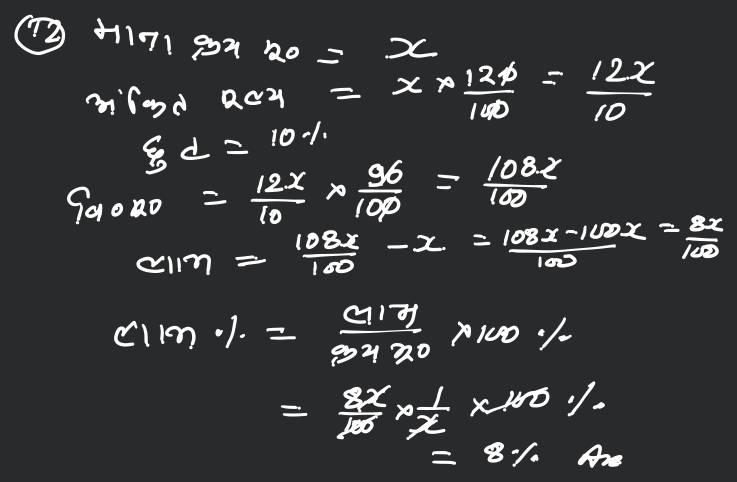 (72) माना क्रय मू० = x
अंकित मूल्य = x × 120/100 = 12x/10
छूट = 10%
वि० मू० = 12x/10 × 90/100 = 108x/100
लाभ = 108x/100 - x = 108x-100x/100 = 8x/100
लाभ % = लाभ/क्रय मू० × 100 %
= 8x/100 × 1/x × 100 %
= 8% Ans